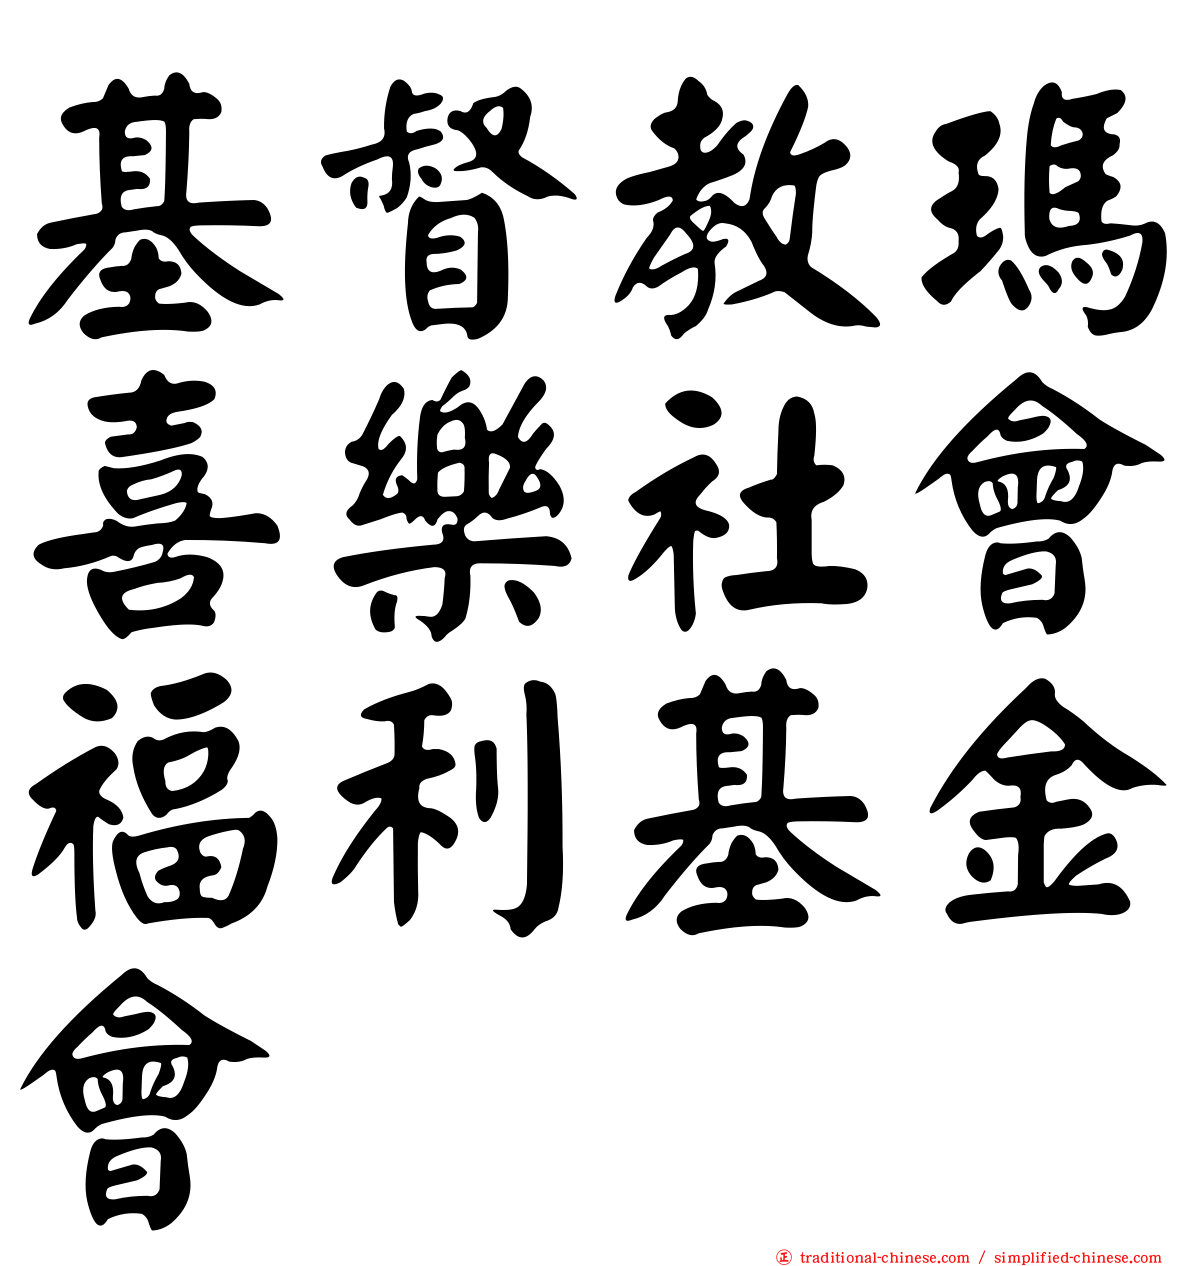 基督教瑪
喜樂社會
福利基金
會
㊣ traditional-chinese.com / simplified-chinese.com